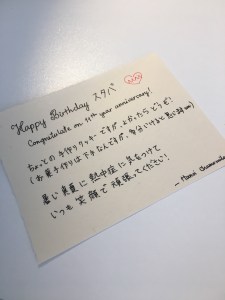 Happy Birthday スタバ
Congratulate on 11th year anniversary!
ちょっとの手作りクッキーですが、よかったらどうぞ!
(お菓子作りは下手なんですが、
暑い真夏に熱中症に気をつけて
いつも笑顔で頑張ってください!